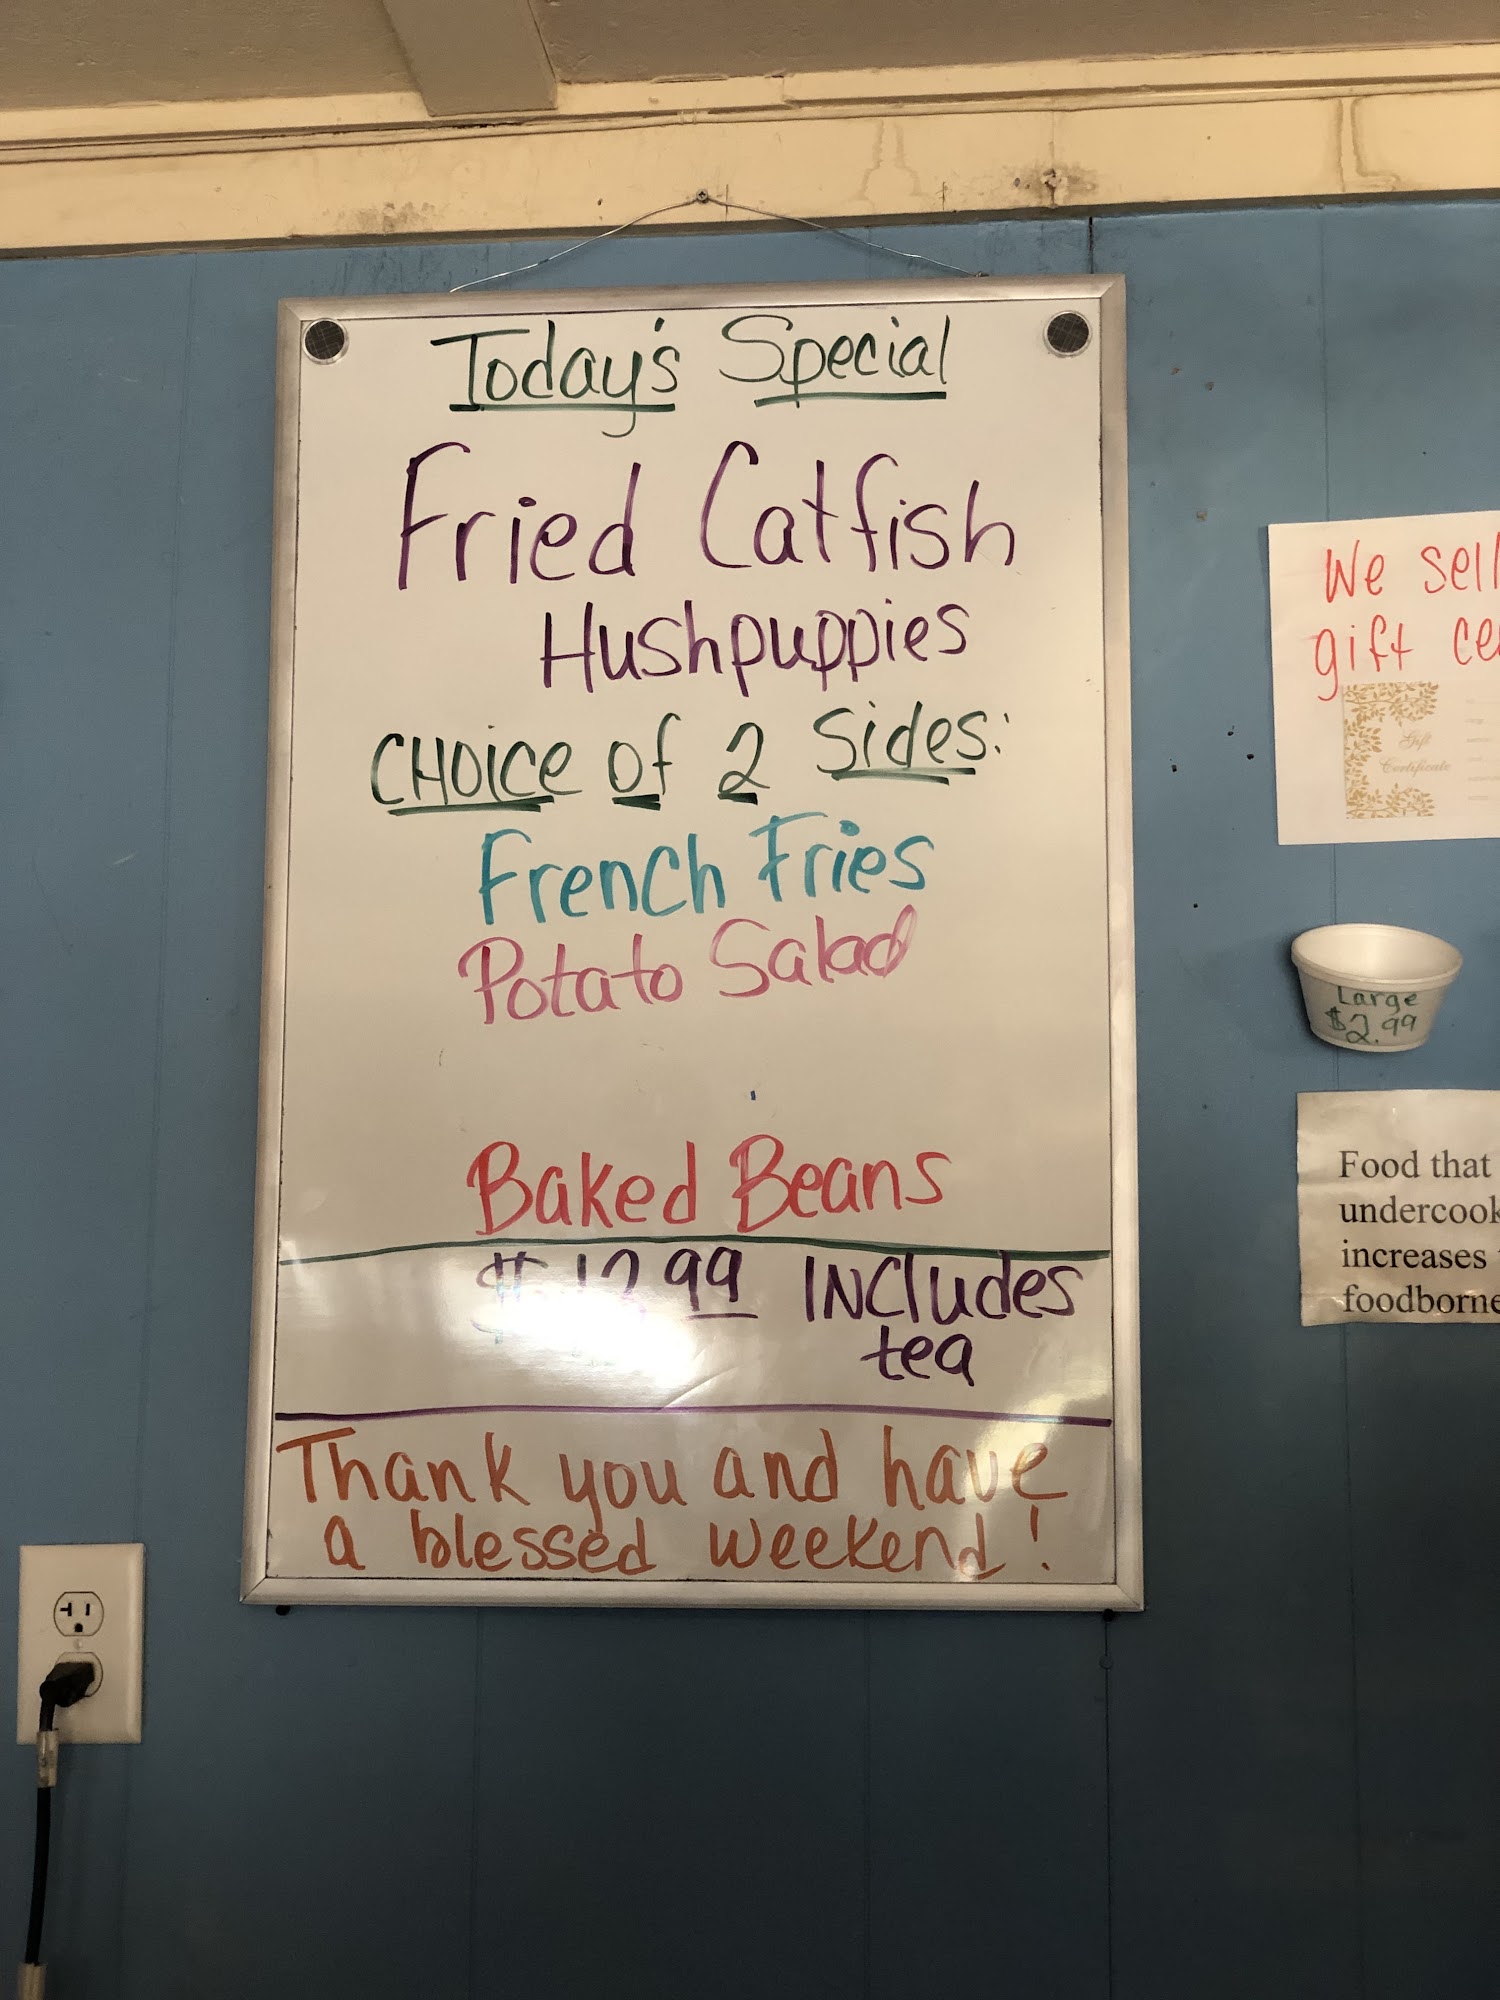 Today's Special
Fried Catfish
Hushpuppies
CHOICe of 2 Sides:
French Fries
Potato Salad
Baked Beans
$12.99 INCludes
tea
Thank you and have
a blessed weekend!
We sell
gift ce
Gift
Certificate
Large
$2.99
Food that
undercook
increases
foodborne